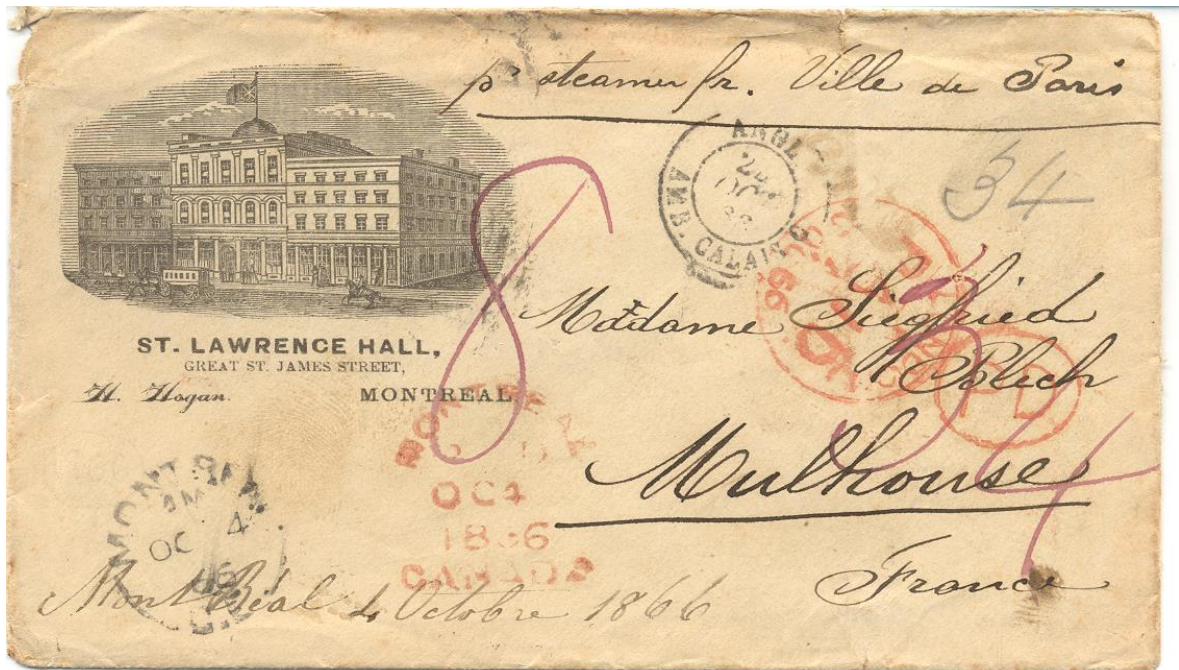 pr steamer fr. Ville de Paris
34
ANGL
AMB. CALAIS
8
ST. LAWRENCE HALL,
GREAT ST. JAMES STREET,
H. Hogan. MONTREAL
Madame Siegfried
Blech
PD
Mulhouse
France
MONTREAL
AM
OC 4
66
C.E.
OC 4
1866
CANADA
Montréal 4 Octobre 1866